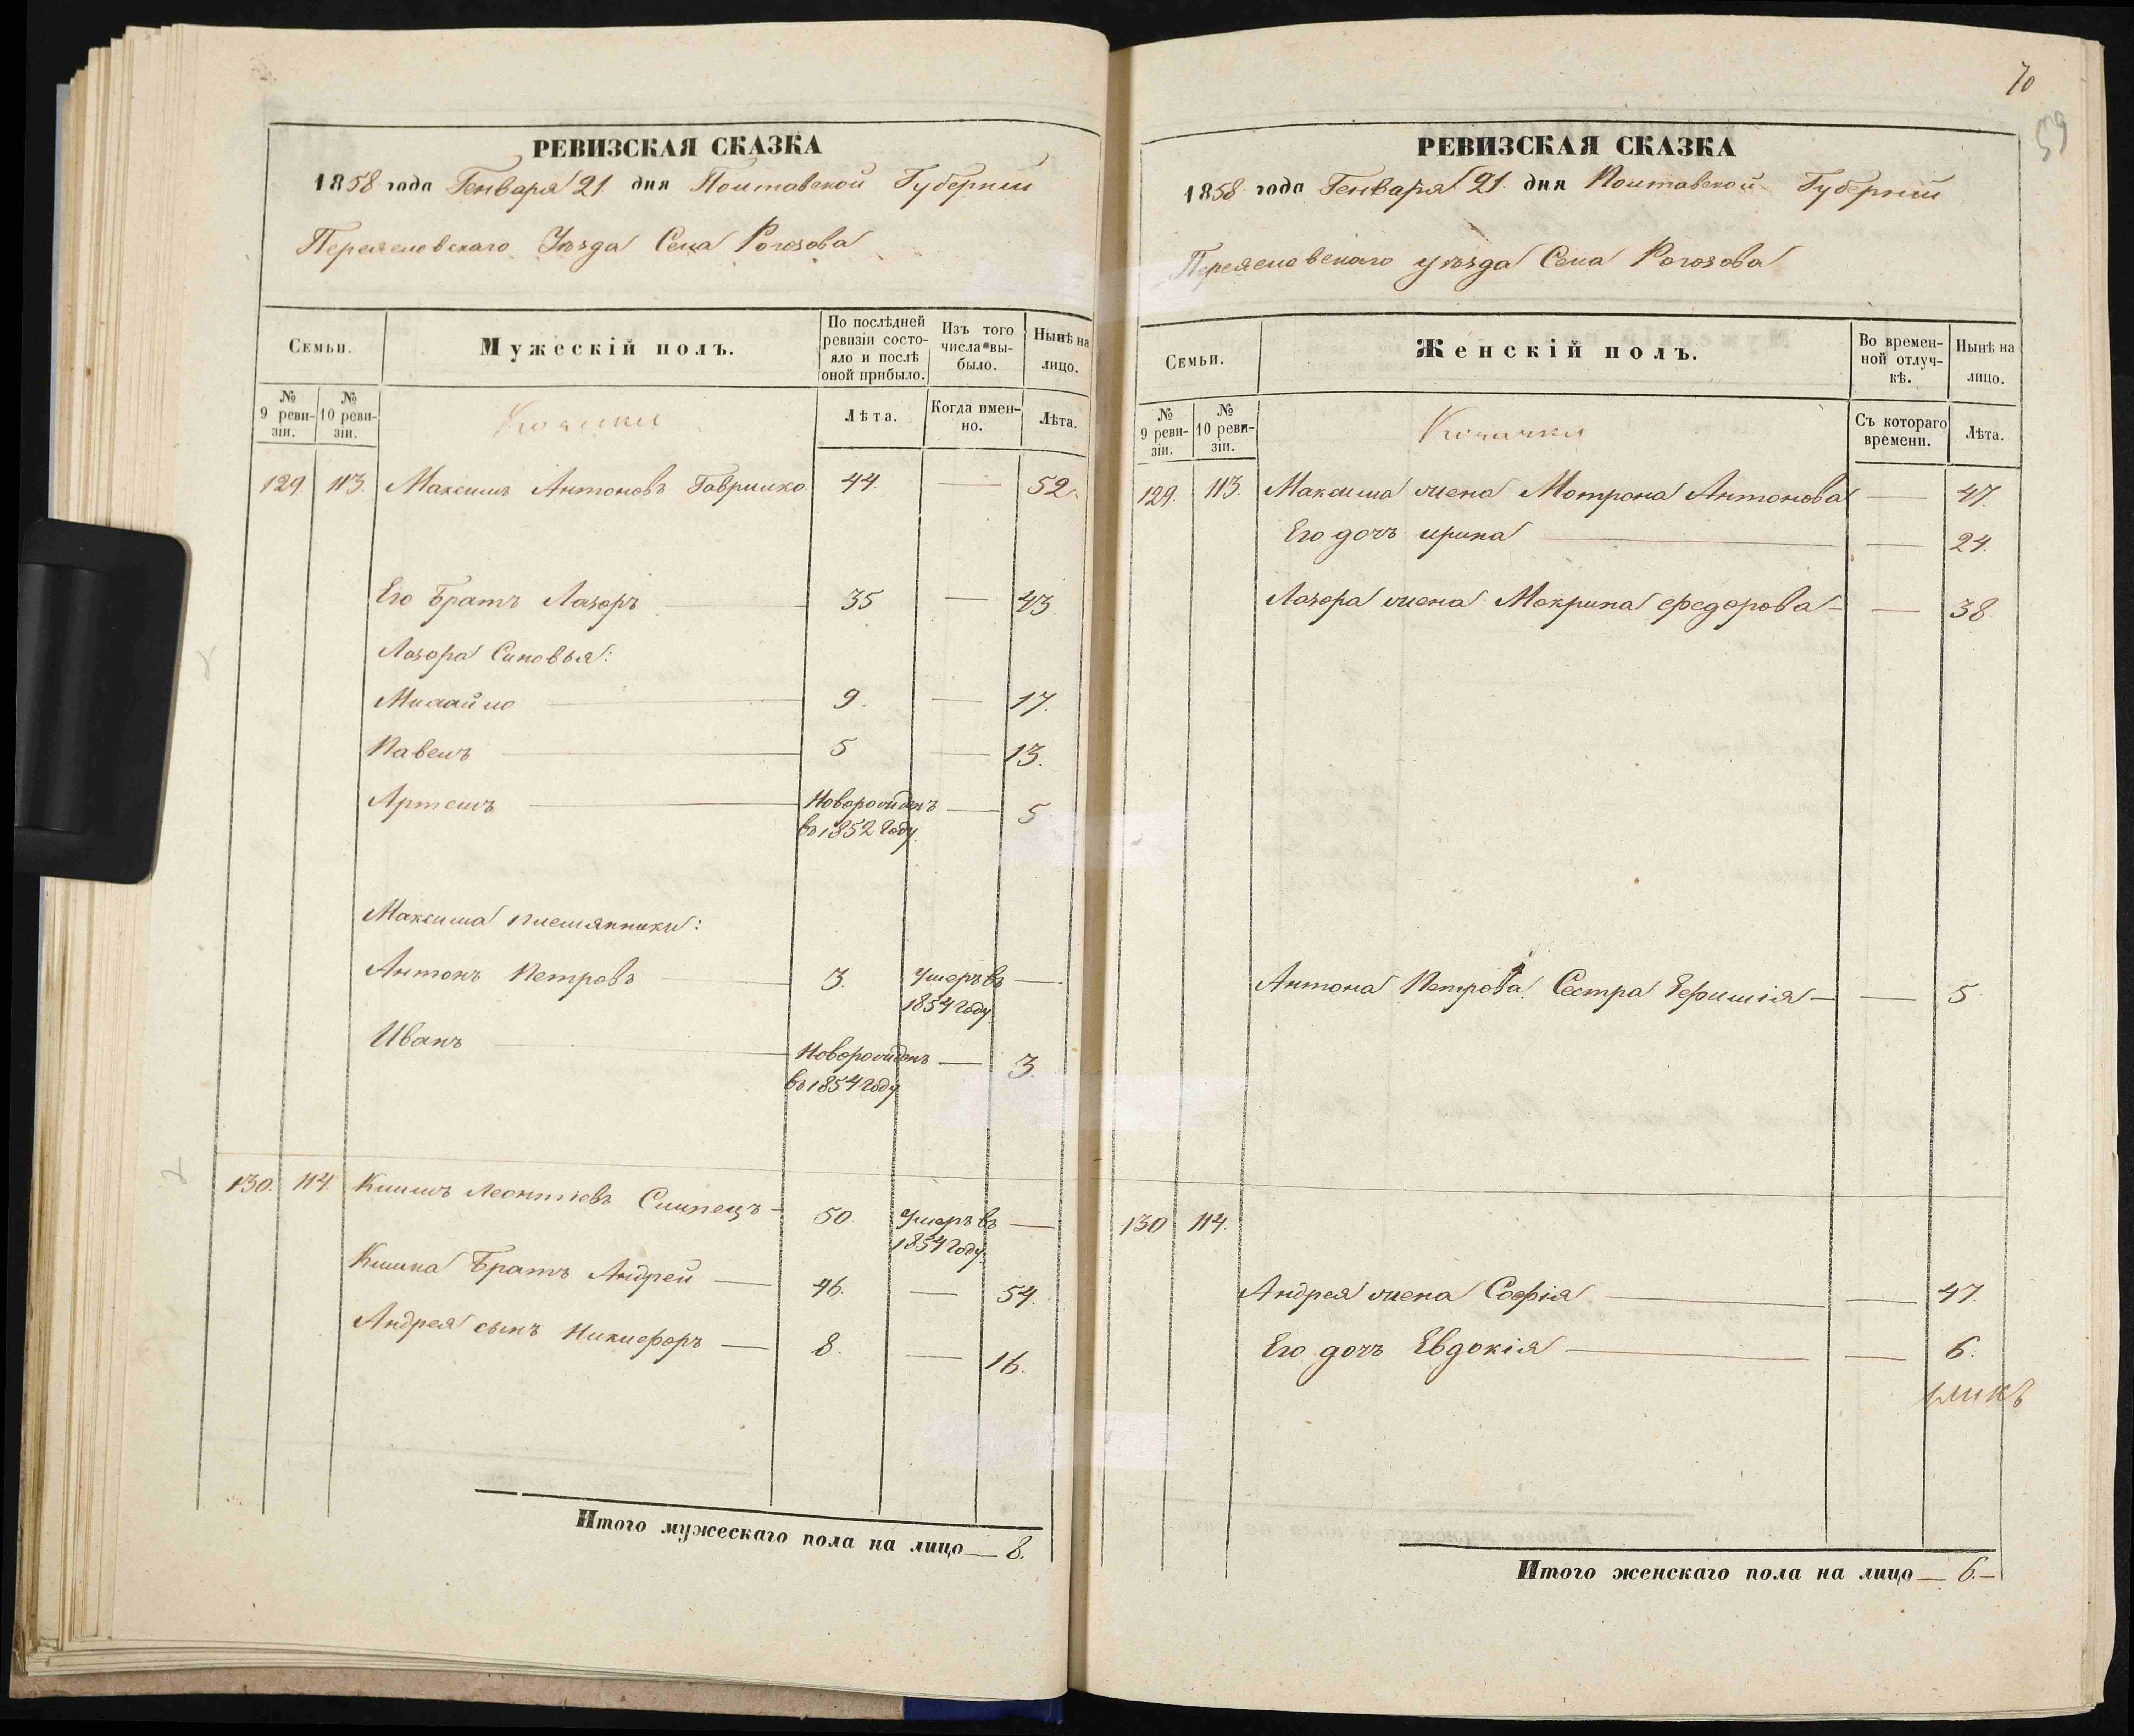 РЕВИЗСКАЯ СКАЗКА
1858 года Генваря 21 дня Полтавской Губернии
Переяславскаго Уѣзда Села Рогозова
Семьи.
Мужескій полъ.
По послѣдней ревизіи состояло и послѣ оной прибыло.
Изъ того числа выбыло.
Нынѣ на лицо.
№ 9 ревизіи.
№ 10 ревизіи.
Козаки
Лѣта.
Когда именно.
Лѣта.
129. 113. Максимъ Антоновъ Гаврилко. 44. — 52.
Его Братъ Лазоръ 35 — 43
Лазора Синовья:
Михайло 9. — 17.
Павелъ 5 — 13.
Артемъ Новорожденъ — 5
въ 1852 году.
Максима племянники:
Антонъ Петровъ 3. Умеръ въ —
1854 году.
Иванъ Новорожденъ — 3.
въ 1854 году
130. 114 Климъ Леонтіевъ Слипецъ 50. Умеръ въ —
1854 году.
Клима Братъ Андрей — 46. — 54.
Андрея сынъ Никифоръ — 8. — 16.
Итого мужескаго пола на лицо — 8.
70
59
РЕВИЗСКАЯ СКАЗКА
1858 года Генваря 21. дня Полтавской Губерніи
Переяславскаго уѣзда Села Рогозова
Семьи.
Женскій полъ.
Во временной отлучкѣ.
Нынѣ на лицо.
№ 9 ревизіи.
№ 10 ревизіи.
Козачки
Съ котораго времени.
Лѣта.
129. 113. Максима жена Мотрона Антонова — 47.
Его дочь ирина — 24.
Лазора жена Мокрина федорова — 38.
Антона Петрова Сестра Ефимія — 5
130 114.
Андрея жена Софія — 47.
Его дочь Евдокія — 6.
Итого женскаго пола на лицо — 6.—